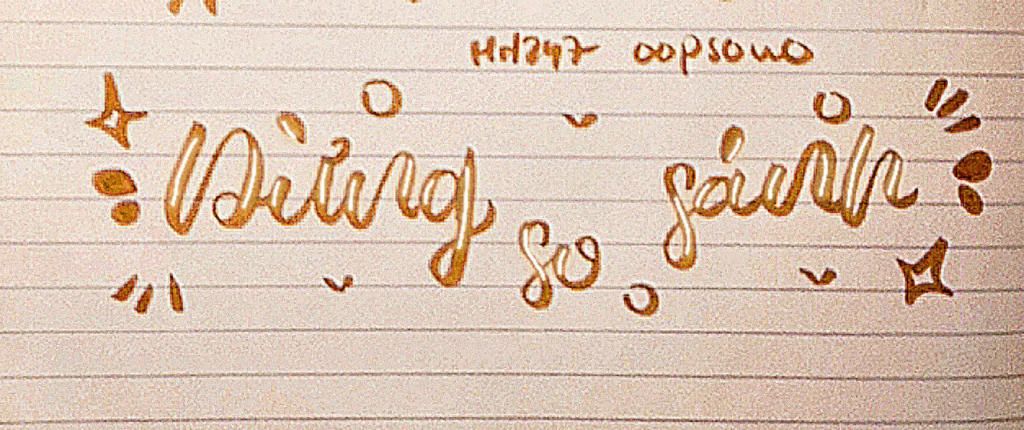 MH347 oopsono
Dừng so sánh